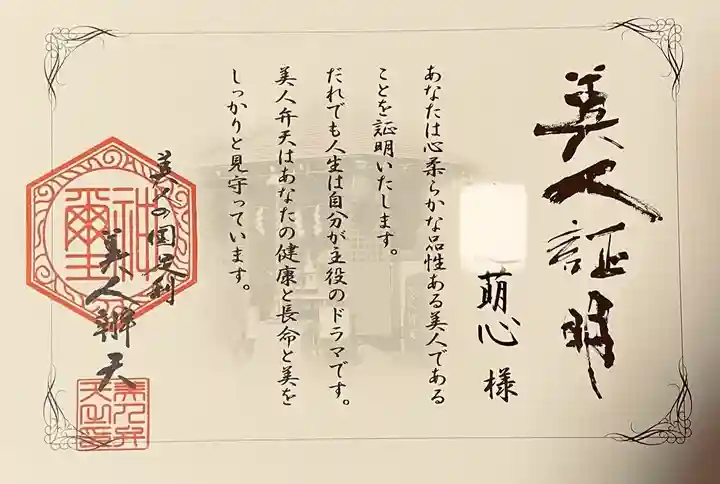 美人証明
萌心 様
あなたは心柔らかな品性ある美人である
ことを証明いたします。
だれでも人生は自分が主役のドラマです。
美人弁天はあなたの健康と長命と美を
しっかりと見守っています。
美人の国足利
美人辨天